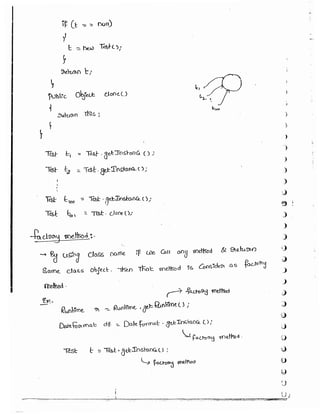 if (t == null)
{
t = new Test();
}
return t;
}
public Object clone()
{
return this;
}
}
t1
t2
t100
Test t1 = Test.getInstance();
Test t2 = Test.getInstance();
Test t100 = Test.getInstance();
Test t101 = Test.clone();
factory method :-
→ By using class name if we call any method & return
same class object. Then that method is consider as factory
method.
→ factory method
Ex:-
Runtime r = Runtime.getRuntime();
DateFormat df = DateFormat.getInstance();
→ factory method.
Test t = Test.getInstance();
→ factory method